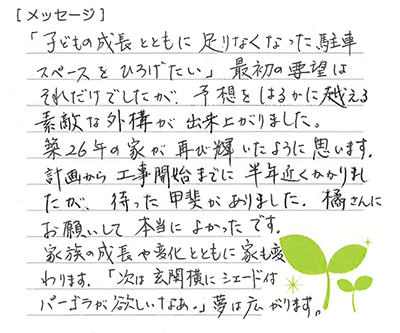 [メッセージ]
「子どもの成長とともに 足りなくなった駐車
スペースを ひろげたい」 最初の要望は
それだけでしたが、予想をはるかに越える
素敵な外構が 出来上がりました。
築26年の家が 再び輝いたように思います。
計画から 工事開始までに 半年近くかかりまし
たが、待った 甲斐がありました。橘さんに
お願いして 本当に よかったです。
家族の成長や変化とともに 家も変
わります。「次は 玄関横に シェード付
パーゴラが 欲しいなあ。」夢は広がります。